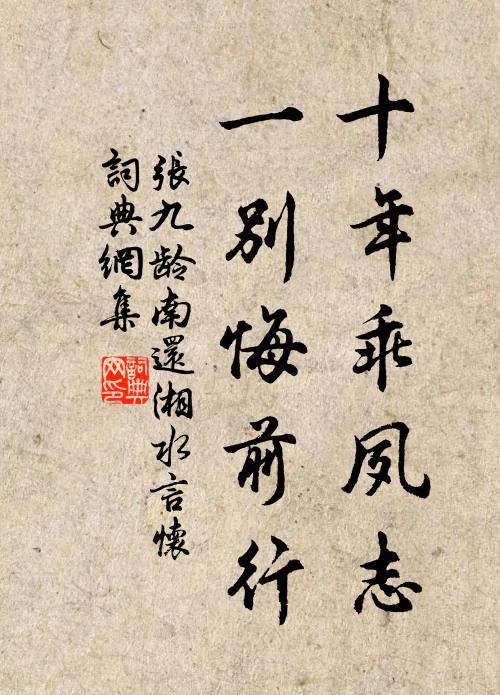 十年乖夙志
一別悔前行
張九齡南還湘水言懷
詞典網集
詞典網印